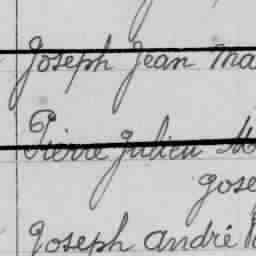 Joseph Jean Ma
Pierre Julien M
Jose
Joseph André